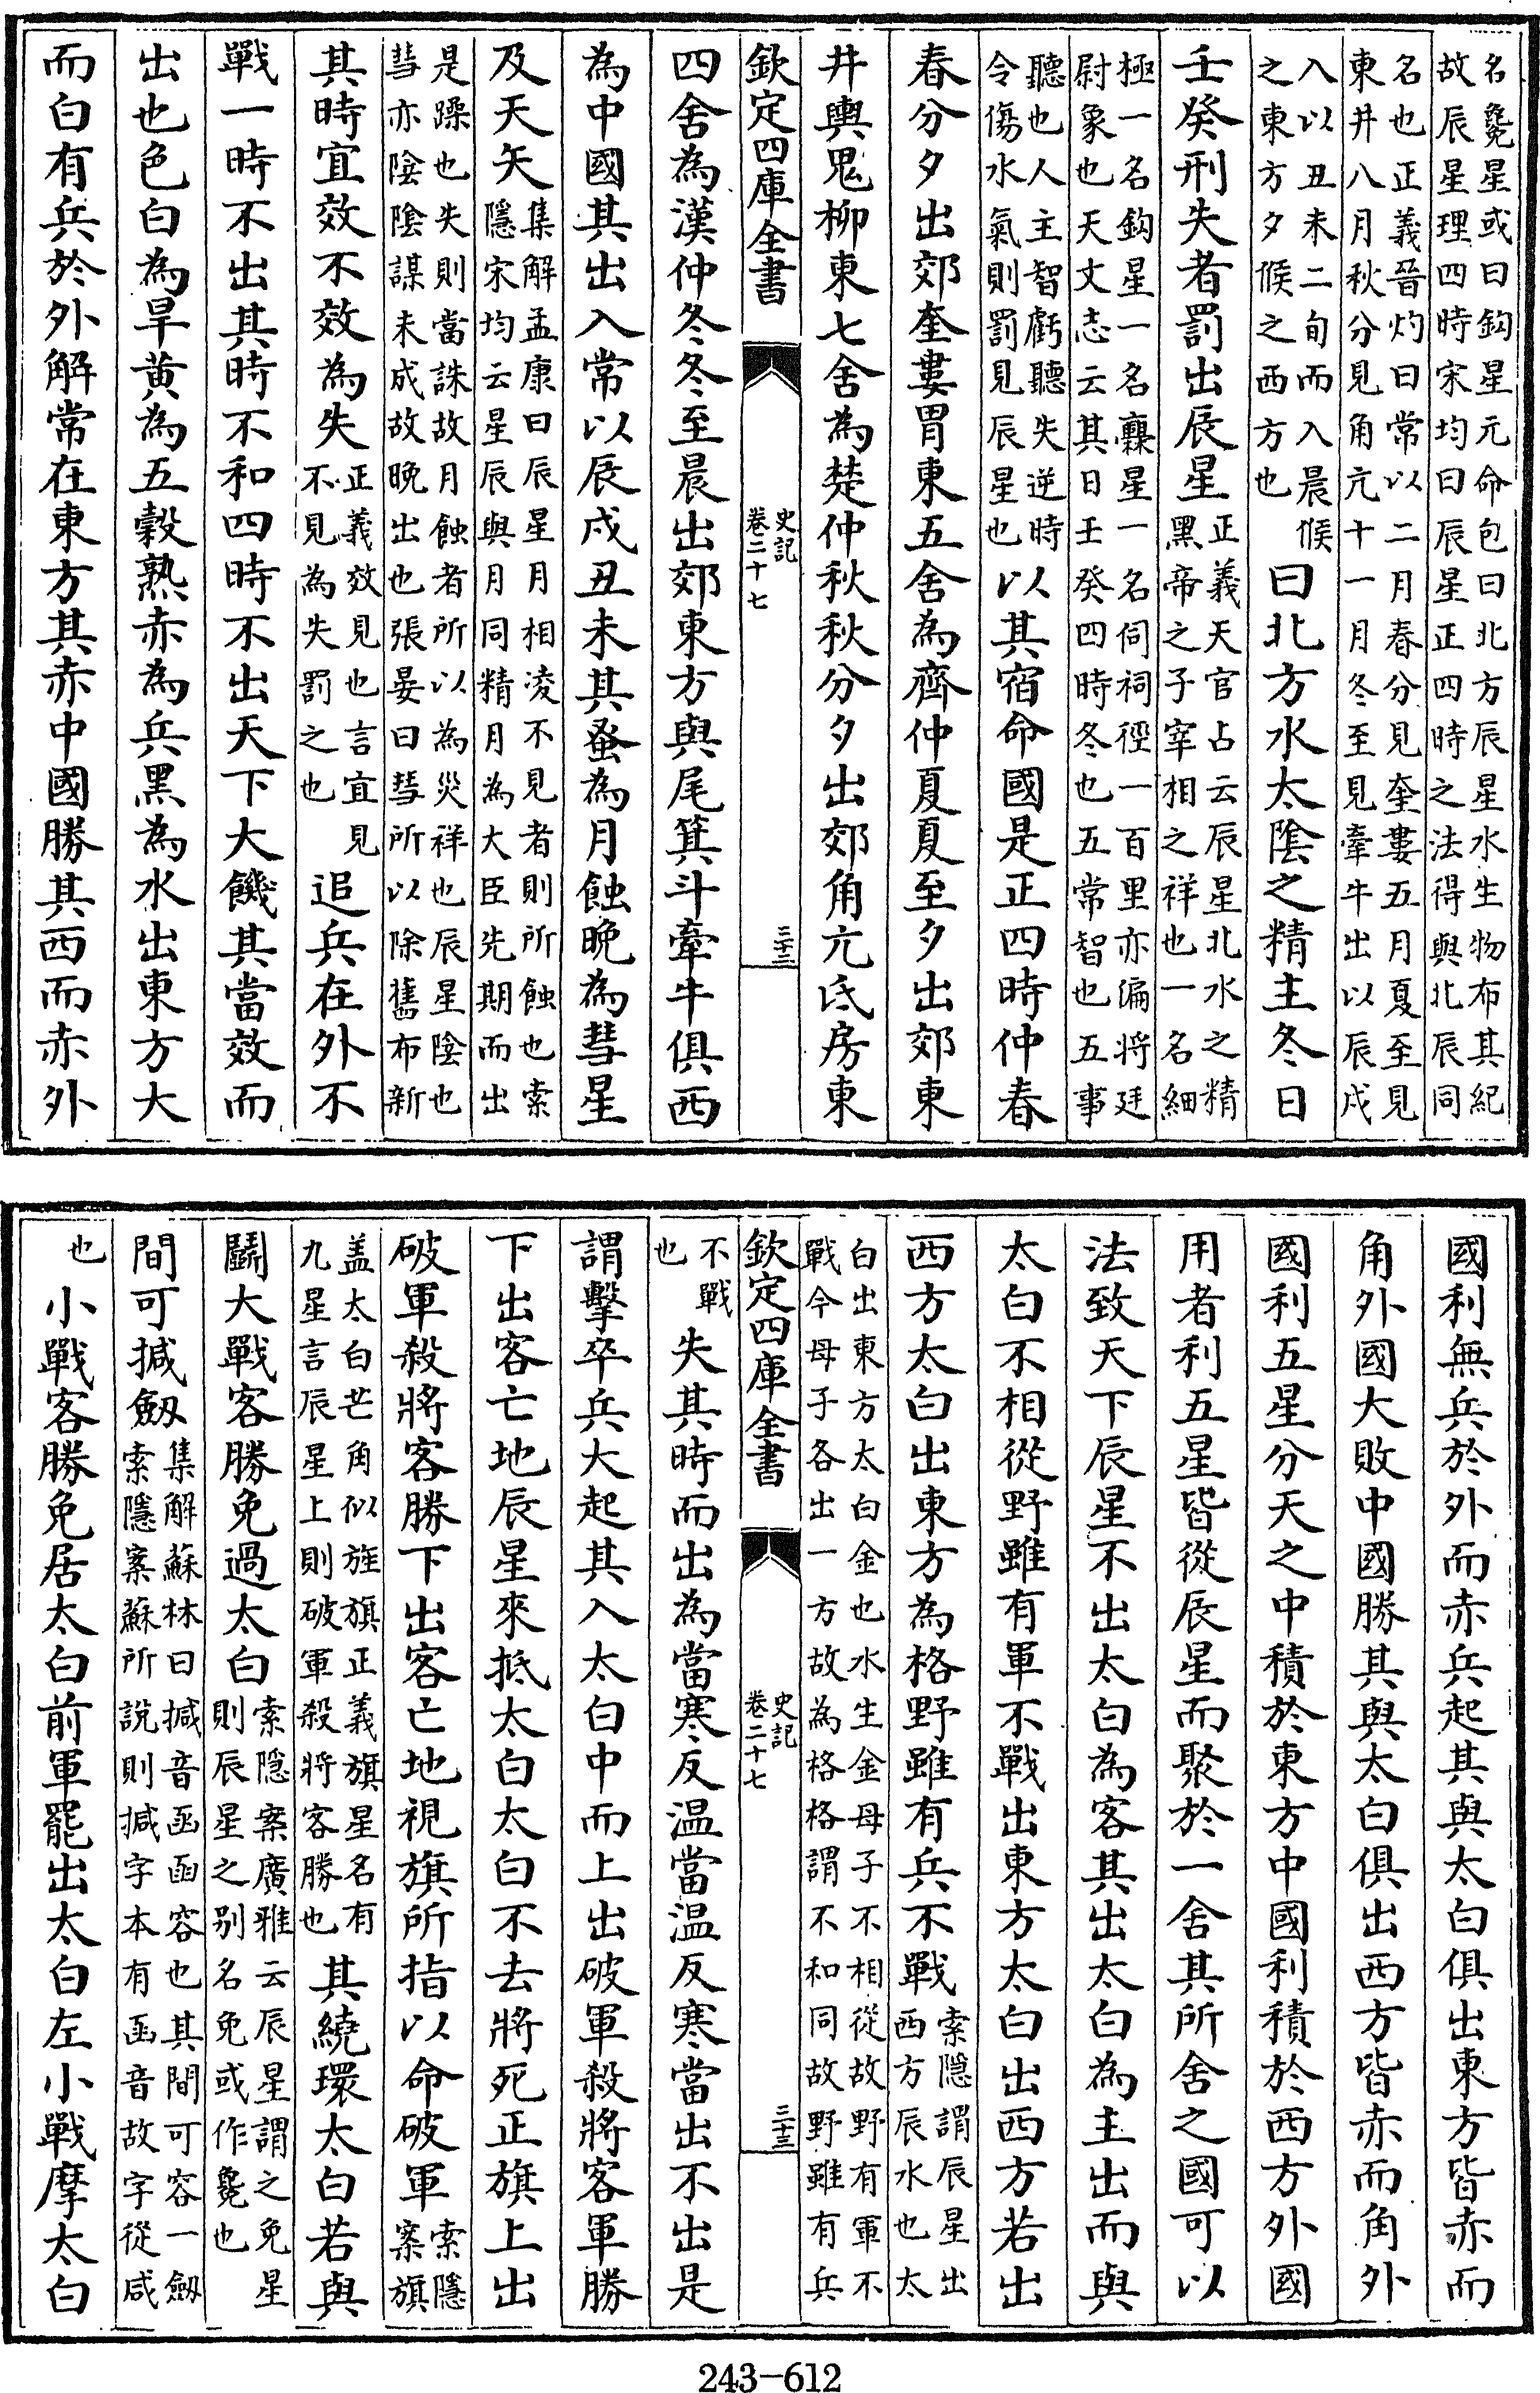 名毚星或曰鈎星元命包曰北方辰星水生物布其紀
故辰星理四時宋均曰辰星正四時之法得與北辰同
名也正義晉灼曰常以二月春分見奎婁五月夏至見
東井八月秋分見角亢十一月冬至見牽牛出以辰戌
入以丑未二旬而入晨候之東方夕候之西方也曰北方水太陰之精主冬日
壬癸刑失者罰出辰星正義天官占云辰星北水之精黑帝之子宰相之祥也一名細
極一名鈎星一名爨星一名伺祠徑一百里亦偏將廷
尉象也天文志云其日壬癸四時冬也五常智也五事
聽也人主智虧聽失逆時令傷水氣則罰見辰星也以其宿命國是正四時仲春
春分夕出郊奎婁胃東五舍為齊仲夏夏至夕出郊東
井輿鬼柳東七舍為楚仲秋秋分夕出郊角亢氐房東
欽定四庫全書
史記
卷二十七
三十三
四舍為漢仲冬冬至晨出郊東方與尾箕斗牽牛俱西
為中國其出入常以辰戌丑未其蚤為月蝕晚為彗星
及天矢集解孟康曰辰星月相凌不見者則所蝕也索隱宋均云星辰與月同精月為大臣先期而出
是躁也失則當誅故月蝕者所以為災祥也辰星陰也
彗亦陰陰謀未成故晚出也張晏曰彗所以除舊布新
其時宜效不效為失正義效見也言宜見不見為失罰之也追兵在外不
戰一時不出其時不和四時不出天下大饑其當效而
出也色白為旱黄為五穀熟赤為兵黑為水出東方大
而白有兵於外解常在東方其赤中國勝其西而赤外
國利無兵於外而赤兵起其與太白俱出東方皆赤而
角外國大敗中國勝其與太白俱出西方皆赤而角外
國利五星分天之中積於東方中國利積於西方外國
用者利五星皆從辰星而聚於一舍其所舍之國可以
法致天下辰星不出太白為客其出太白為主出而與
太白不相從野雖有軍不戰出東方太白出西方若出
西方太白出東方為格野雖有兵不戰索隱謂辰星出西方辰水也太
白出東方太白金也水生金母子不相從故野有軍不
戰今母子各出一方故為格格謂不和同故野雖有兵
不戰也失其時而出為當寒反温當温反寒當出不出是
謂擊卒兵大起其入太白中而上出破軍殺將客軍勝
下出客亡地辰星來抵太白太白不去將死正旗上出
破軍殺將客勝下出客亡地視旗所指以命破軍索隱案旗
盖太白芒角似旌旗正義旗星名有
九星言辰星上則破軍殺將客勝也其繞環太白若與
鬭大戰客勝免過太白索隱案廣雅云辰星謂之免星則辰星之别名免或作毚也
間可摵劔集解蘇林曰摵音函函容也其間可容一劔索隱案蘇所說則摵字本有函音故字從咸
也小戰客勝免居太白前軍罷出太白左小戰摩太白
243-612